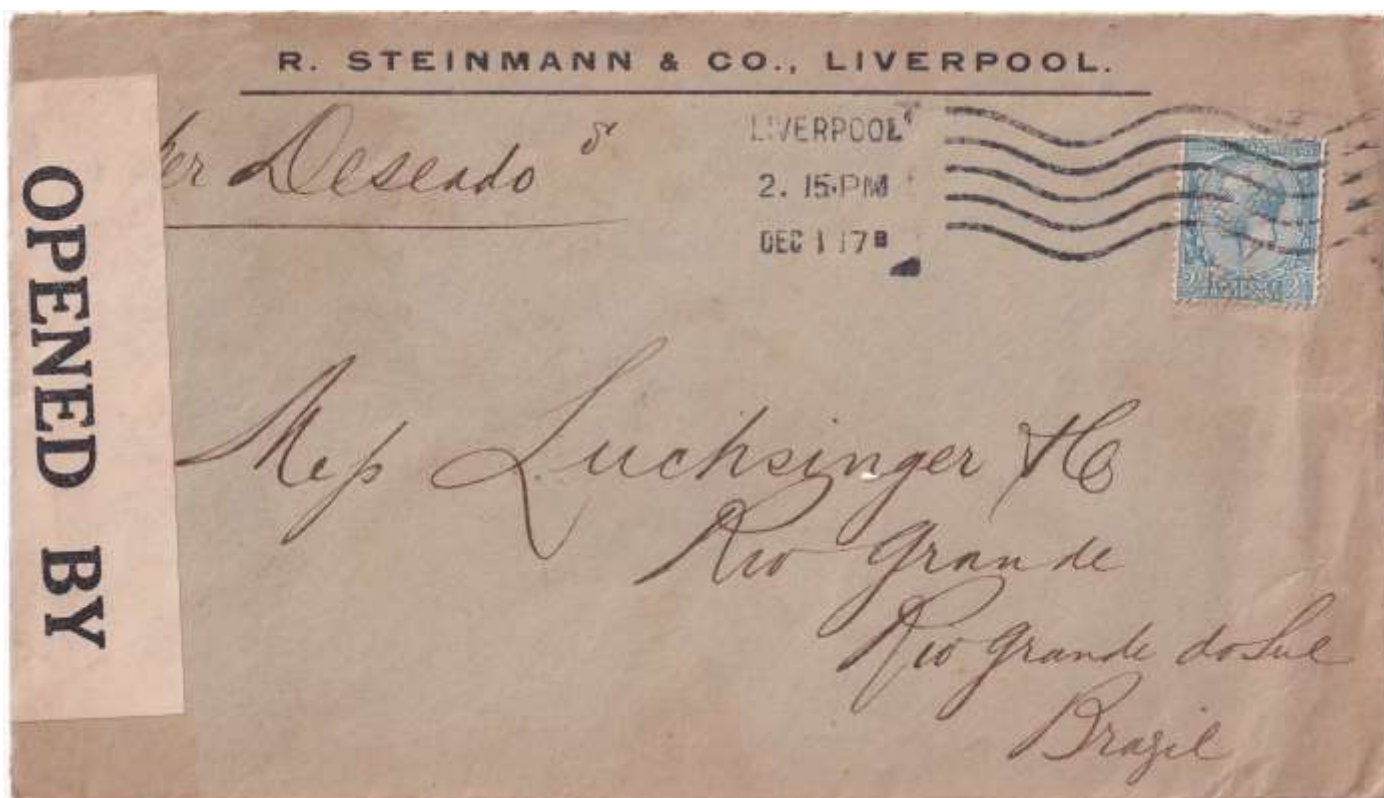 R. STEINMANN & CO., LIVERPOOL.
per Deseado
LIVERPOOL
2. 15 PM
DEC 1 17
OPENED BY
Mess Luchsinger & Co
Rio Grande
Rio Grande do Sul
Brazil